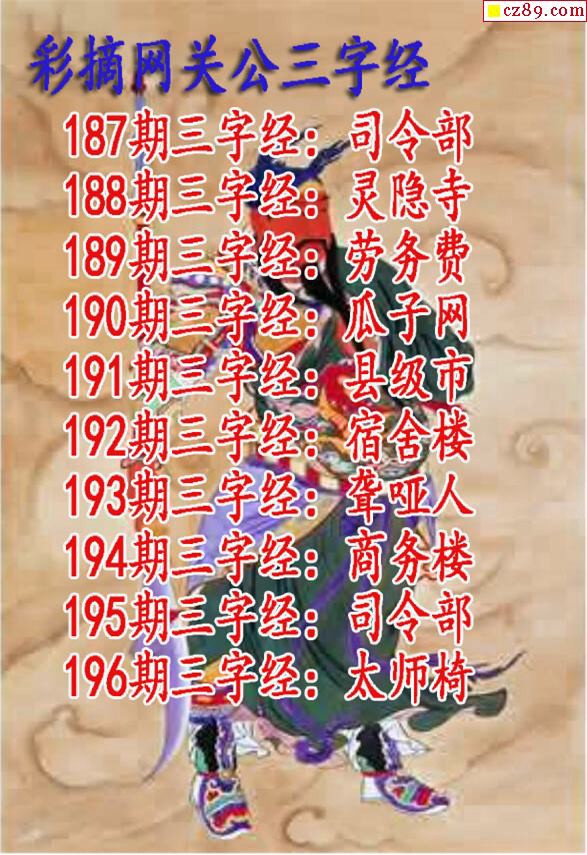 cz89.com
彩摘网关公三字经
187期三字经：司令部
188期三字经：灵隐寺
189期三字经：劳务费
190期三字经：瓜子网
191期三字经：县级市
192期三字经：宿舍楼
193期三字经：聋哑人
194期三字经：商务楼
195期三字经：司令部
196期三字经：太师椅